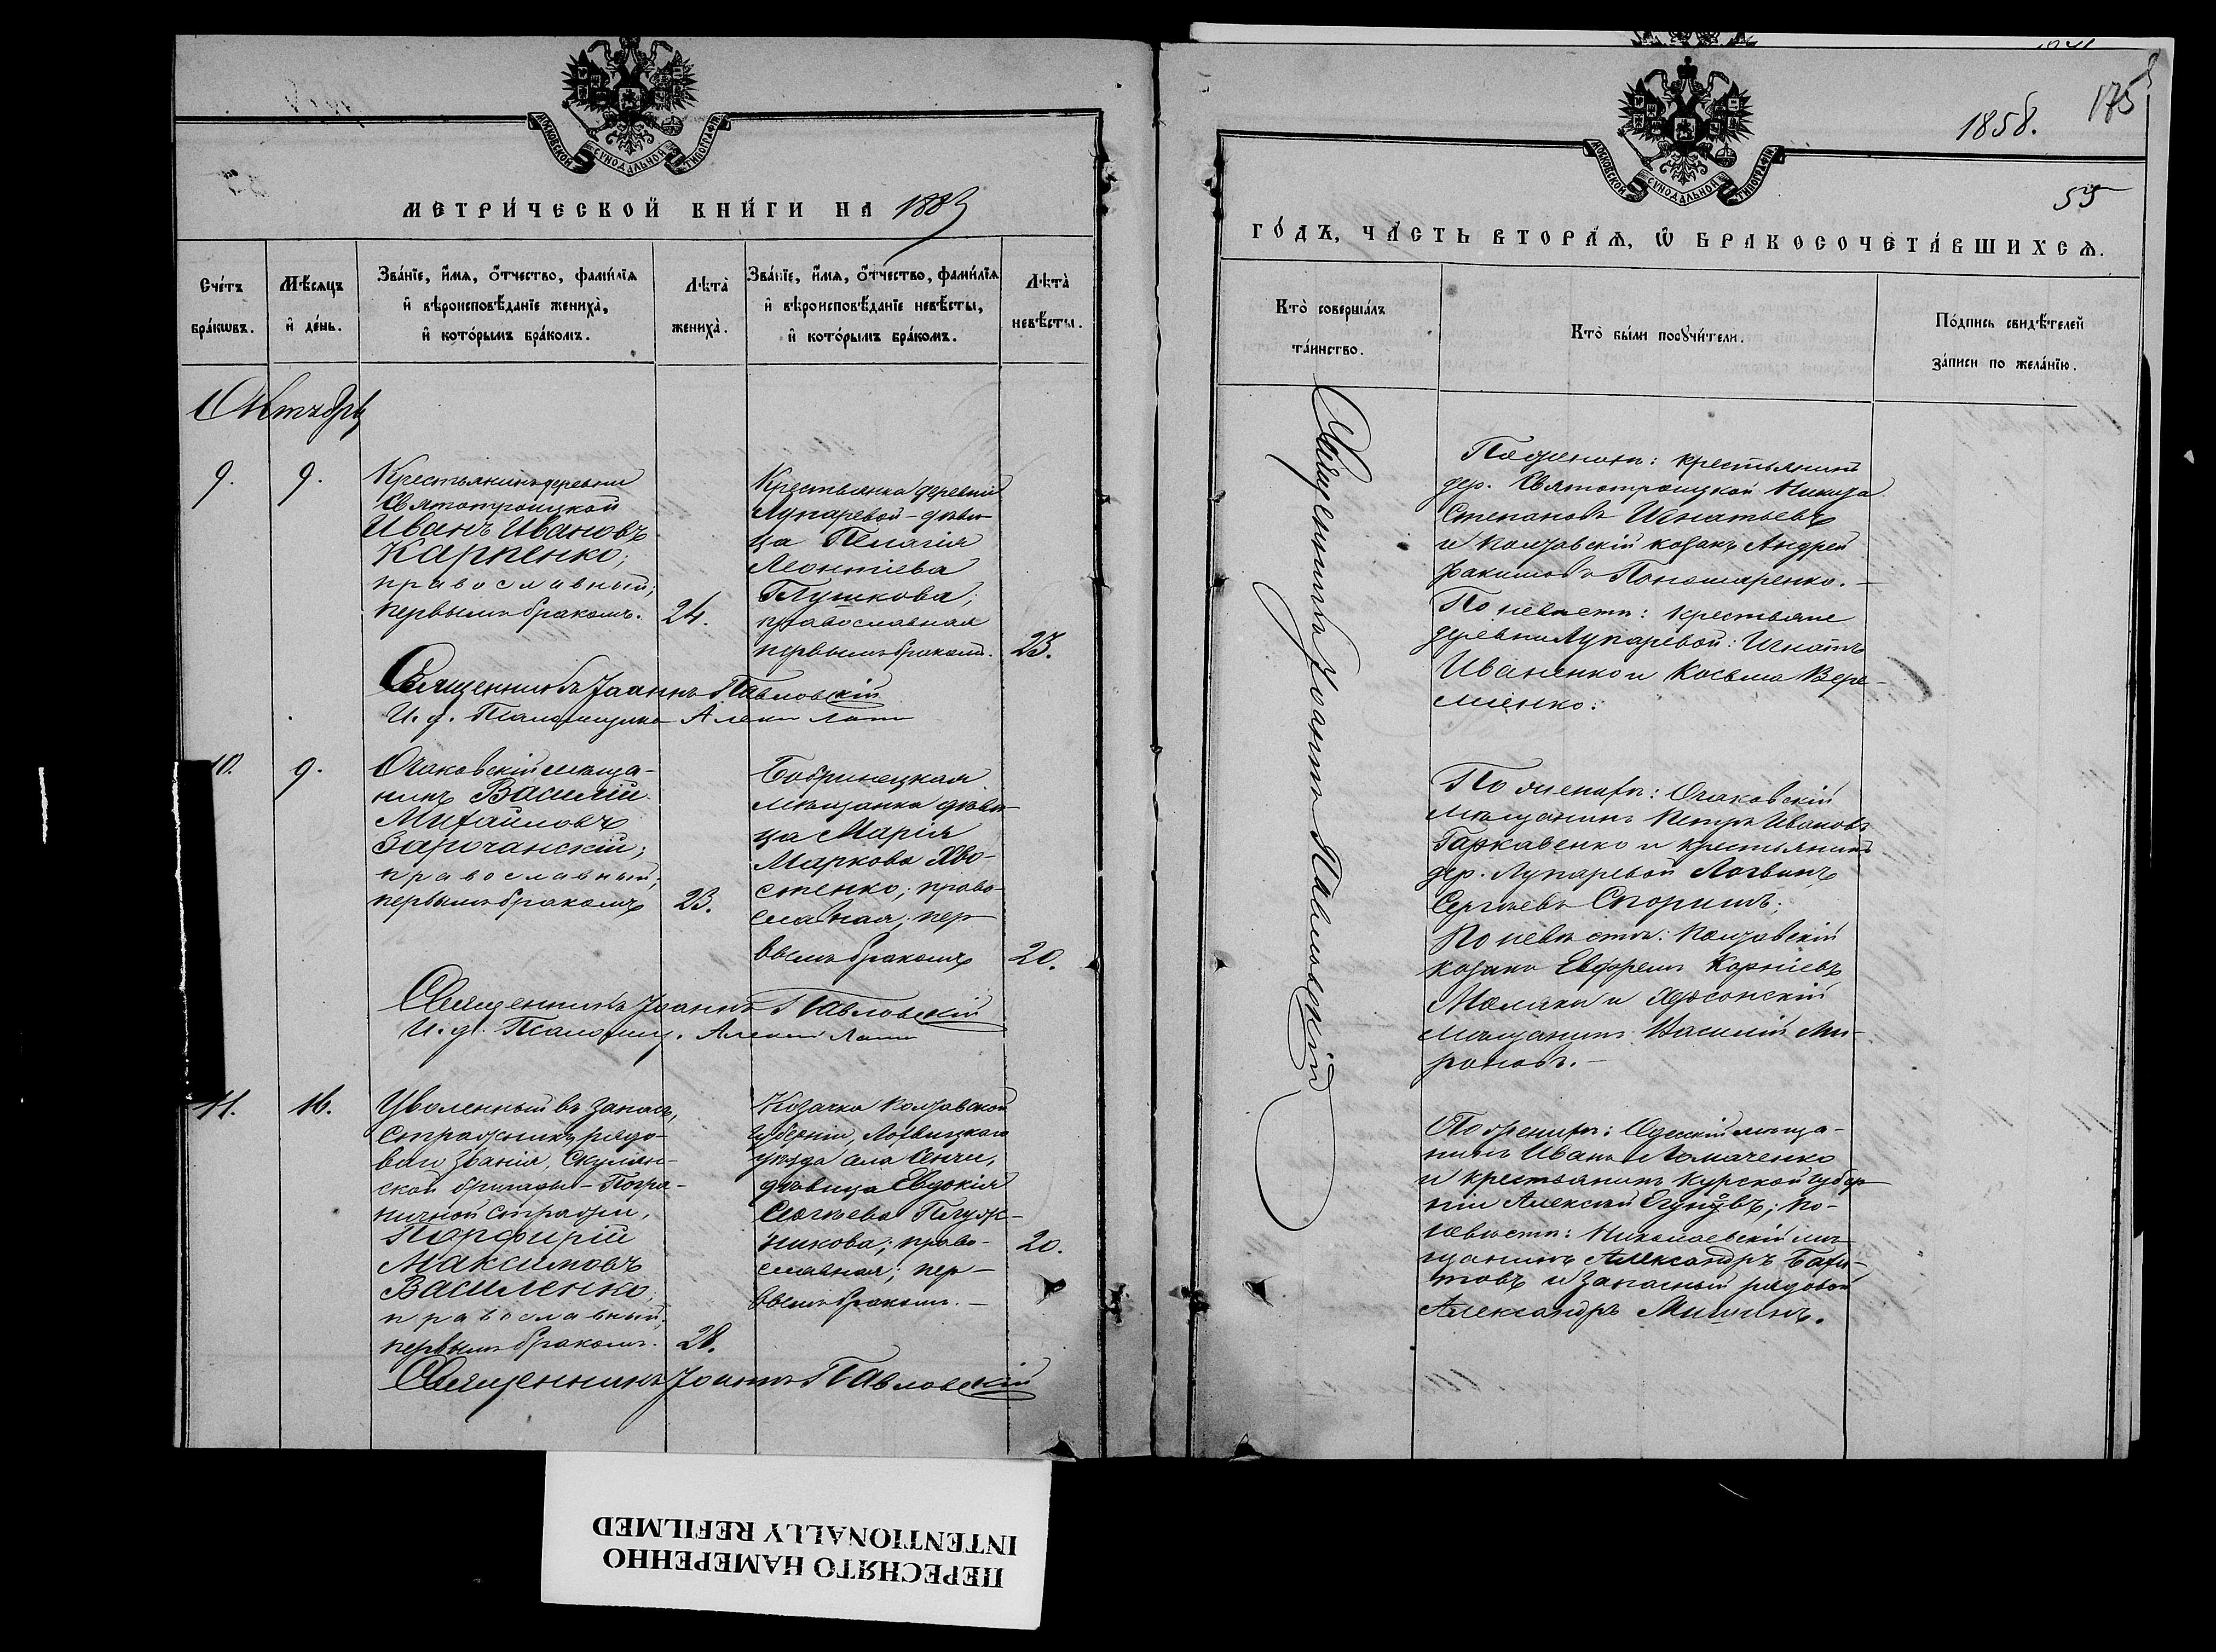 МЕТРИ́ЧЕСКОЙ КНИ́ГИ НА 1889
Сче́тъ бра́кѡвъ.
Мѣ́сяцъ и҆ де́нь.
Зва́нїе, и҆́мѧ, ѻ҆́тчество, фами́лїѧ
и҆ вѣроисповѣ́данїе жениха̀,
и҆ кото́рымъ бра́комъ.
Лѣта̀ жениха̀.
Зва́нїе, и҆́мѧ, ѻ҆́тчество, фами́лїѧ
и҆ вѣроисповѣ́данїе невѣ́сты,
и҆ кото́рымъ бра́комъ.
Лѣта̀ невѣ́сты.
Октябрь
9.
9.
Крестьянинъ деревни
Святотроицкой
Иванъ Ивановъ
Карпенко;
православный;
первымъ бракомъ.
24.
Крестьянка деревни
Лупаревой - дѣви-
ца Пелагія
Леонтіева
Глушкова;
православная
первымъ бракомъ.
23.
Священникъ Іоаннъ Павловскій
И. д. Псаломщика
10.
9.
Очаковскій мѣща-
нинъ Василій
Михайловъ
Зарочанскій;
православный;
первымъ бракомъ
23.
Бобринецкая
мѣщанка дѣви-
ца Марія
Маркова Хво-
стенко; право-
славная; пер-
вымъ бракомъ
20.
Священникъ Іоаннъ Павловскій
И. д. Псаломщ.
11.
16.
Уволенный въ запасъ,
стражникъ рядо-
ваго званія, Скулян-
ской бригады - Погра-
ничной стражи,
Порфирій
Максимовъ
Василенко,
православный;
первымъ бракомъ.
28.
Козачка Полтавской
губерніи, Лохвицкаго
уѣзда села Сенчи,
дѣвица Евдокія
Плуж-
никова; право-
славная; пер-
вымъ бракомъ.-
20.
Священникъ Іоаннъ Павловскій
1858.
175
55
ГО́ДЪ, ЧА́СТЬ ВТОРА́Ѧ, Ѡ҆ БРАКОСОЧЕТА́ВШИХСѦ.
Кто̀ соверша́лъ
та́инство.
Кто̀ бы́ли порꙋчи́тели.
По́дпись свидѣ́телей
за́писи по жела́нїю.
Священникъ Іоаннъ Павловскій
По женихѣ: крестьянинъ
дер. Святотроицкой Никита
Степановъ Игнатьевъ
и Полтавскій козакъ Андрей
Пономаренко.-
По невѣстѣ: крестьяне
деревни Лупаревой: Игнатъ
Иваненко и Косьма Вере-
мієнко.
По женихѣ: Очаковскій
мѣщанинъ Петръ Ивановъ
Гаркавенко и крестьянинъ
дер. Лупаревой Логвинъ
Сергѣевъ Спориш;
По невѣстѣ: Полтавскій
козакъ Ефремъ Корніевъ
и Херсонскій
мѣщанинъ Василій Ми-
роновъ.-
По женихѣ: Одесскій мѣща-
нинъ Иванъ Ломаченко
и крестьянинъ Курской губер-
ніи Алексѣй; по-
невѣстѣ: Николаевскій мѣ-
щанинъ Александръ Бахи-
товъ и запасный рядовой
Александръ Мишинъ.
ПЕРЕСНЯТО НАМЕРЕННО
INTENTIONALLY REFILMED